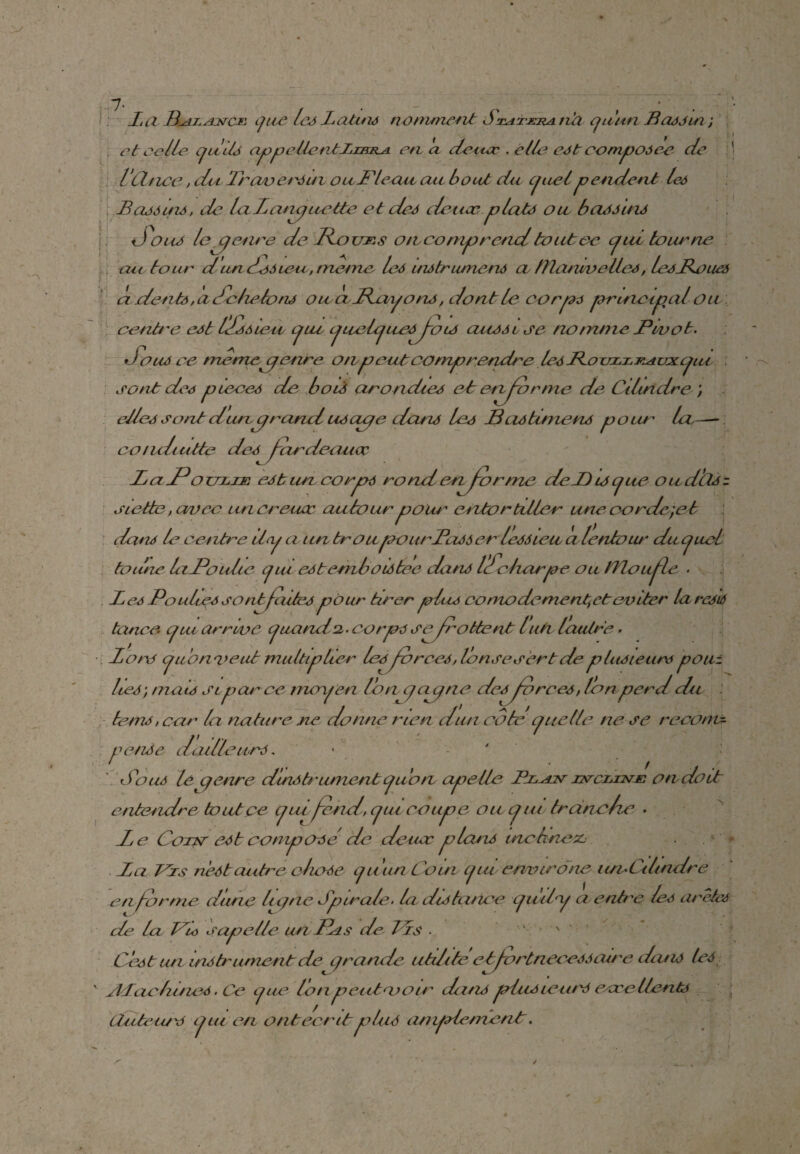 7.
La BALANCE que les Latins nomment STATERA n'a qu'un Bassin;
et celle qu'ils appellent LIBRA en a deux. elle est composée de
l'Ance, du Traversin ou Fleau au bout du quel pendent les
Bassins, de la Languette et des deux plats ou bassins
Sous le genre de ROUES on comprend tout ce qui tourne
au tour d'un Essieu, même les instrumens a Manivelles, les Roues
a dents, a Echelons ou a Rayons, dont le corps principal ou
centre est l'Essieu qui quelques fois aussi se nomme Pivot.
Sous ce même genre on peut comprendre les ROULLEAUX qui
sont des pieces de bois arondies et en forme de Cilindre;
elles sont d'un grand usage dans les Bastimens pour la
conduitte des fardeaux
La POULIE est un corps rond en forme de Disque ou d'As=
siette, avec un creux autour pour entortiller une corde; et
dans le centre il y a un trou pour Passer l'essieu a l'entour du quel
tourne la Poulie qui est emboistée dans l'Echarpe ou Moufle.
Les Poulies sont faites pour tirer plus comodement, et eviter la resis
tance qui arrive quand 2. corps se frottent l'un l'autre.
Lors qu'on veut multiplier les forces, l'on se sert de plusieurs pou=
lies; mais si par ce moyen l'on gagne des forces, l'on perd du
tems, car la nature ne donne rien d'un coté quelle ne se recom=
pense d'ailleurs.
Sous le genre d'instrument qu'on apelle PLAN INCLINE on doit
entendre tout ce qui fend, qui coupe ou qui tranche.
Le COIN est composé de deux plans inclinez
La VIS n'est autre chose qu'un Coin qui environe un Cilindre
en forme d'une ligne Spirale. la distance qu'il y a entre les arêtes
de la Vis s'apelle un PAS de VIS.
C'est un instrument de grande utilité et fort necessaire dans les
Machines. Ce que l'on peut voir dans plusieurs excellents
Auteurs qui en ont ecrit plus amplement.